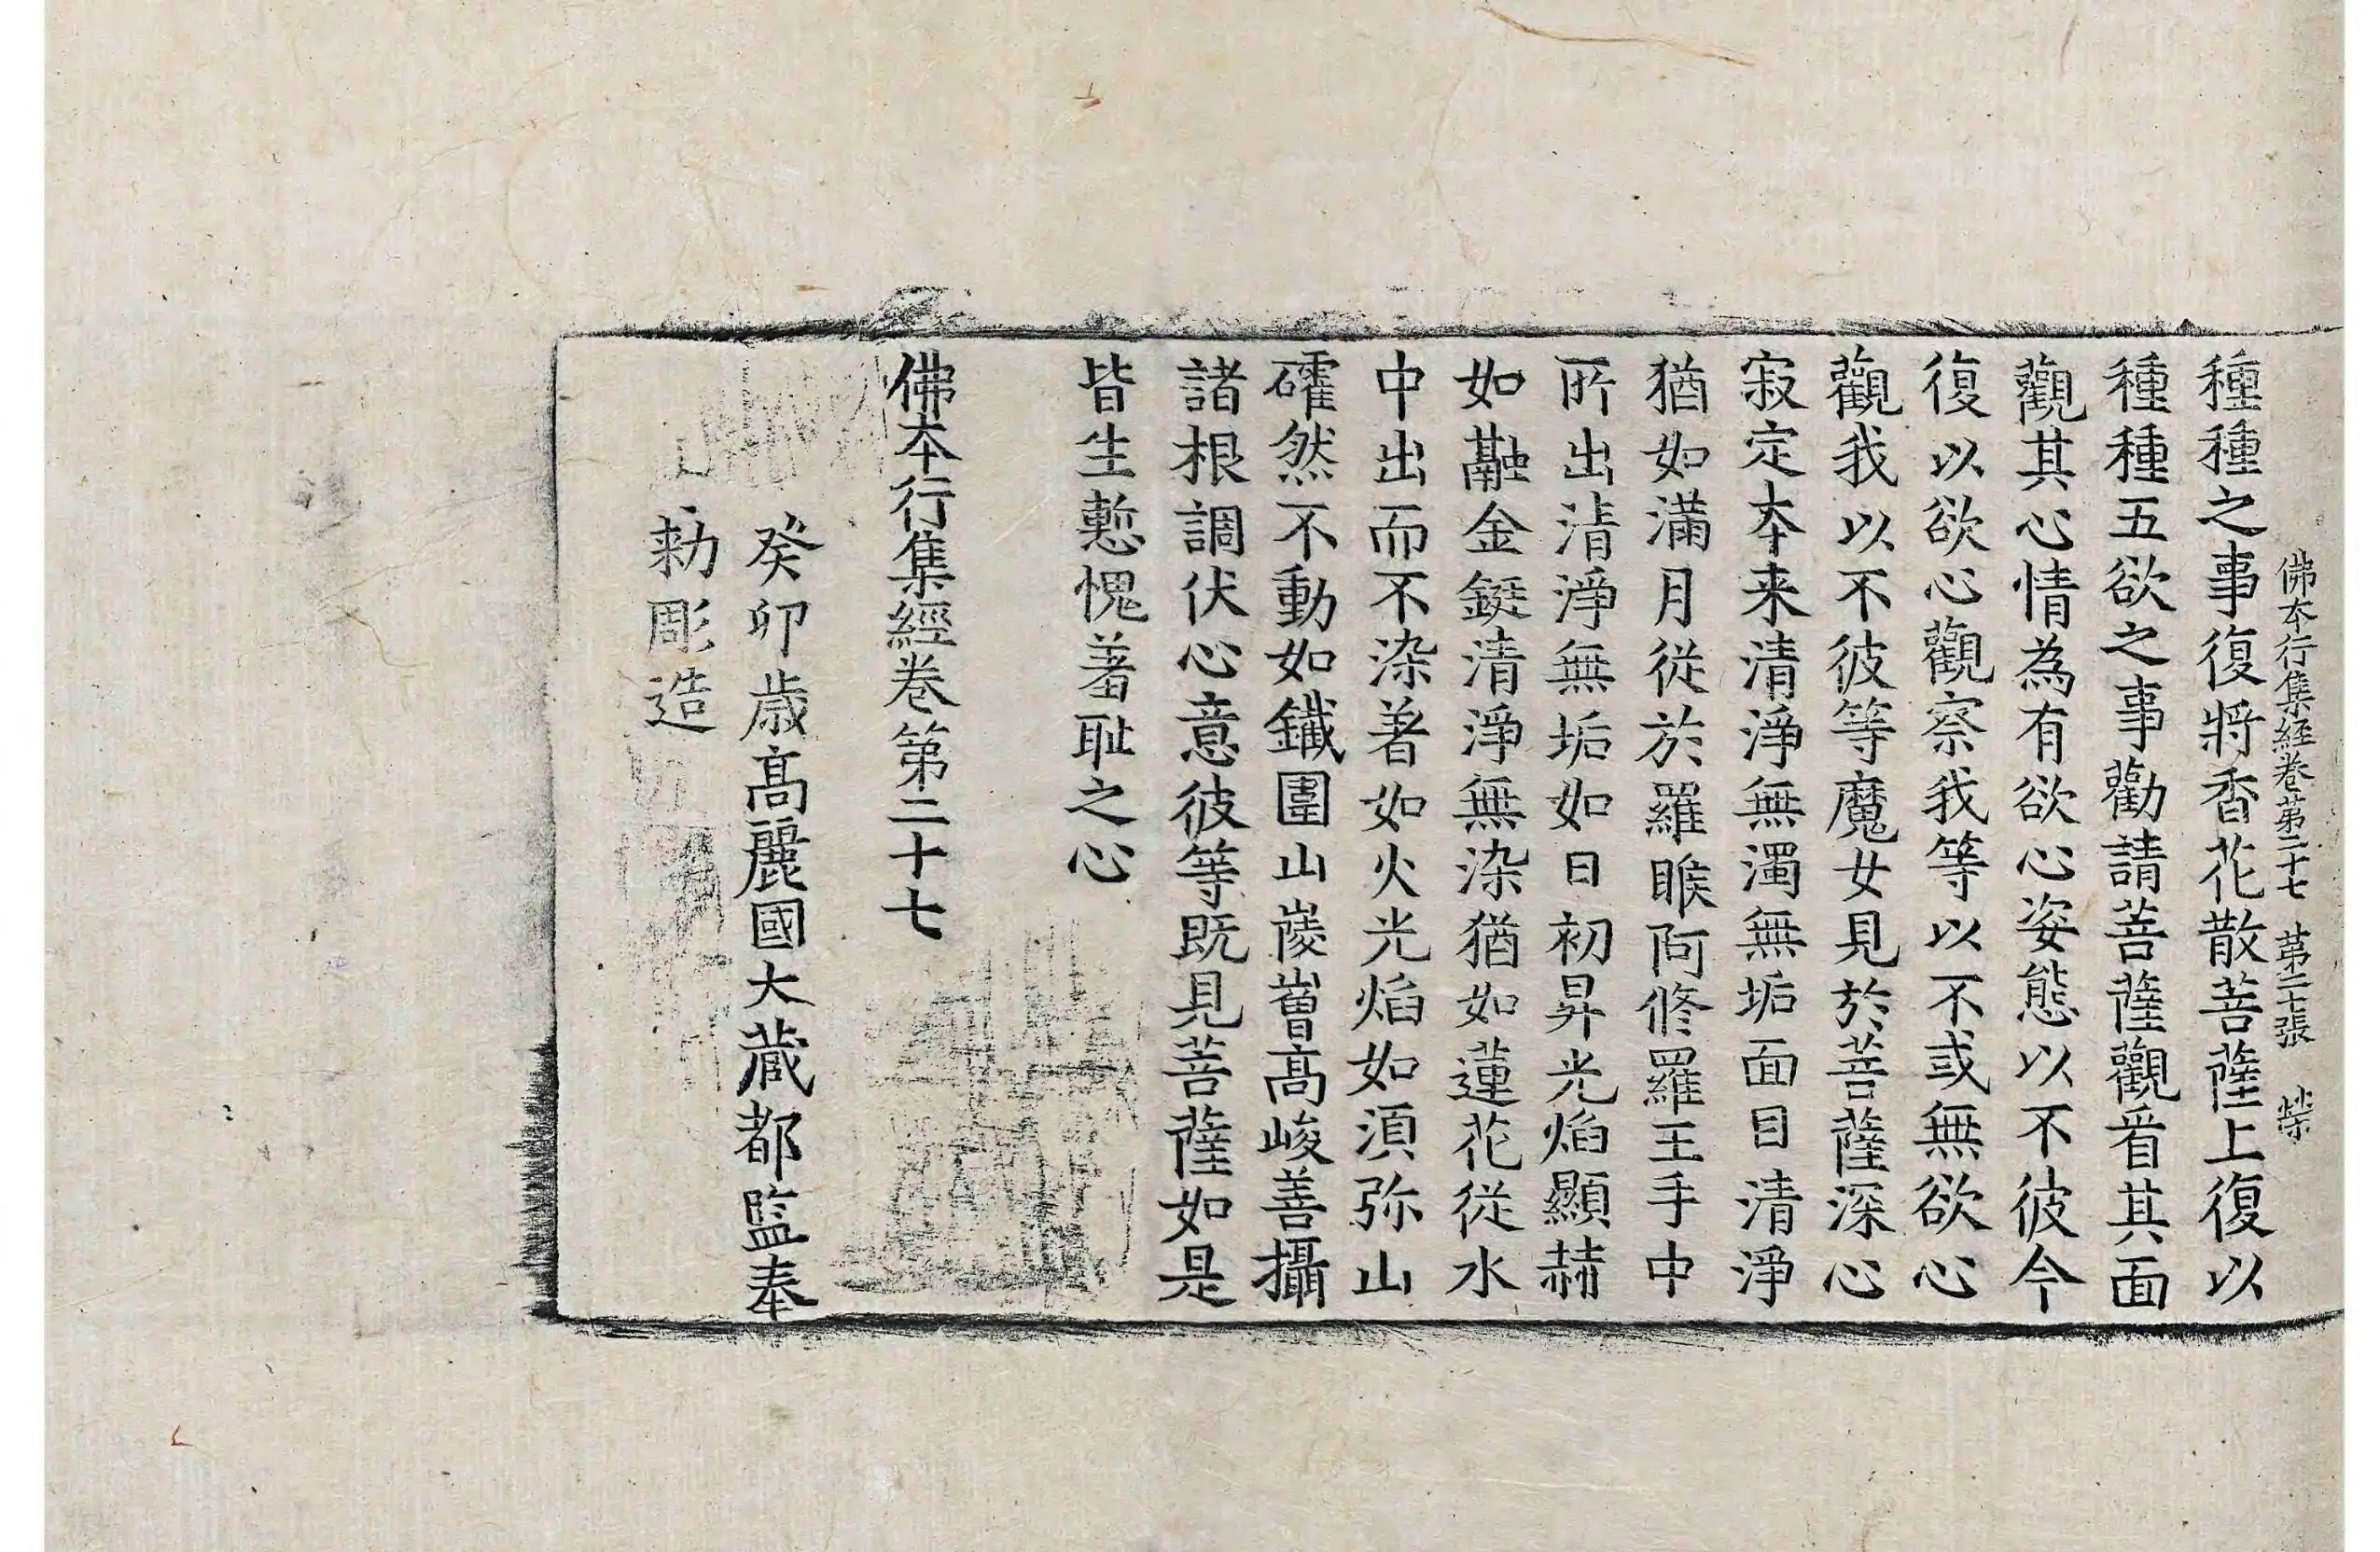 佛本行集經卷第二十七 第二十張 榮
種種之事復將香花散菩薩上復以
種種五欲之事勸請菩薩觀看其面
觀其心情為有欲心姿態以不彼今
復以欲心觀察我等以不或無欲心
觀我以不彼等魔女見於菩薩深心
寂定本来清淨無濁無垢面目清淨
猶如滿月從於羅睺阿修羅王手中
所出清淨無垢如日初昇光焰顯赫
如融金鋌清淨無染猶如蓮花從水
中出而不染著如火光焰如湏弥山
確然不動如鐵圍山崚嶒高峻善攝
諸根調伏心意彼等既見菩薩如是
皆生慙愧羞耻之心
佛本行集經卷第二十七
癸卯歳高麗國大藏都監奉
勑彫造